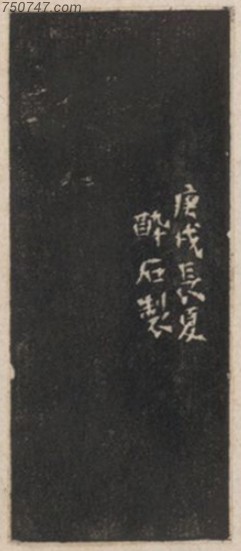 750747.com
庚戌長夏
醉石製